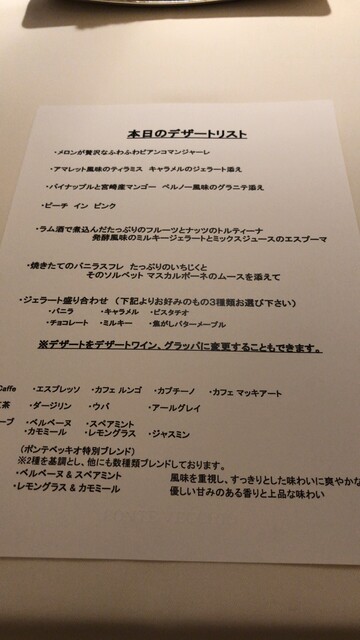 本日のデザートリスト
・メロンが贅沢なふわふわビアンコマンジャーレ
・アマレット風味のティラミス キャラメルのジェラート添え
・パイナップルと宮崎産マンゴー ペルノー風味のグラニテ添え
・ピーチ イン ピンク
・ラム酒で煮込んだたっぷりのフルーツとナッツのトルティーナ
発酵風味のミルキージェラートとミックスジュースのエスプーマ
・焼きたてのバニラスフレ たっぷりのいちじくと
そのソルベット マスカルポーネのムースを添えて
・ジェラート盛り合わせ （下記よりお好みのもの3種類お選び下さい）
・バニラ ・キャラメル ・ピスタチオ
・チョコレート ・ミルキー ・焦がしバターメープル
※デザートをデザートワイン、グラッパに変更することもできます。
Caffe ・エスプレッソ ・カフェ ルンゴ ・カプチーノ ・カフェ マッキアート
茶 ・ダージリン ・ウバ ・アールグレイ
ーブ ・ベルベーヌ ・スペアミント
・カモミール ・レモングラス ・ジャスミン
（ポンテベッキオ特別ブレンド）
※2種を基調とし、他にも数種類ブレンドしております。
・ベルベーヌ & スペアミント 風味を重視し、すっきりとした味わいに爽やかな
・レモングラス & カモミール 優しい甘みのある香りと上品な味わい